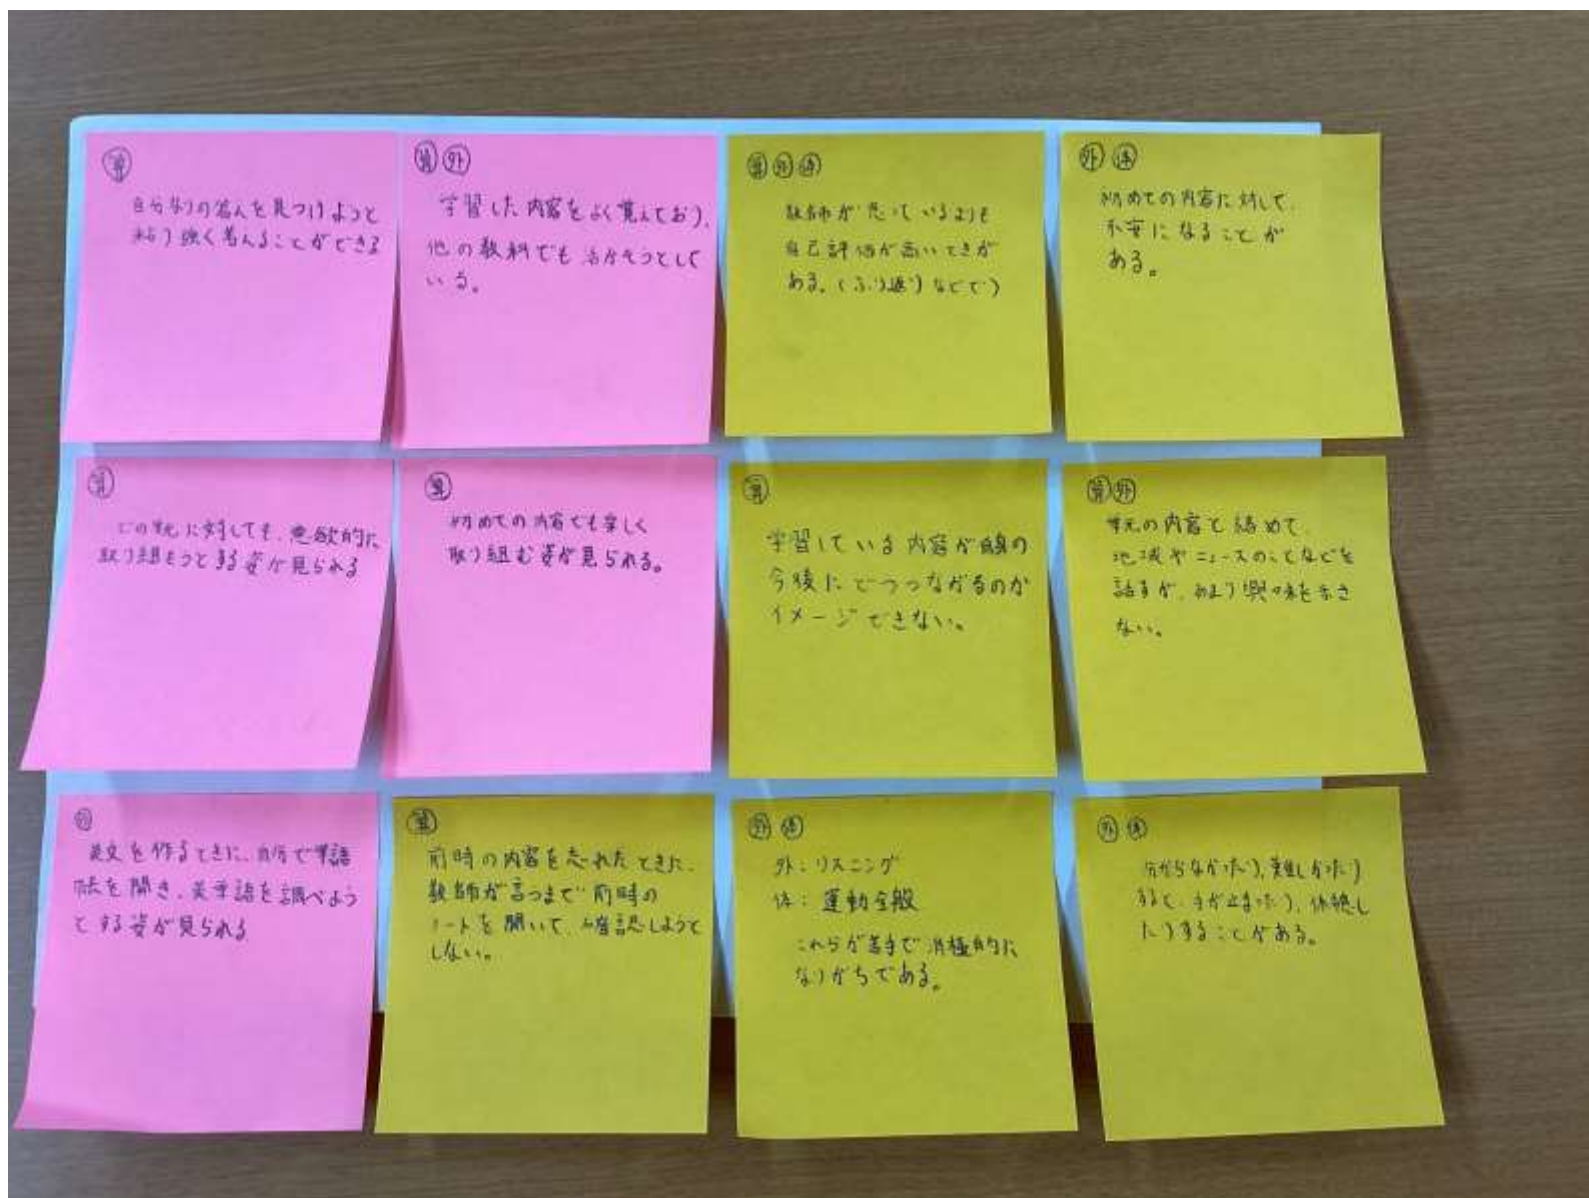 算
自分なりの答えを見つけようと
粘り強く考えることができる
算 外
学習した内容をよく覚えており、
他の教科でも活かそうとして
いる。
算 外 体
教師が思っているよりも
自己評価が高いときが
ある。(ふり返りなどで)
外 体
初めての内容に対して、
不安になることが
ある。
算
どの単元に対しても、意欲的に
取り組もうとする姿が見られる
算
初めての内容でも楽しく
取り組む姿が見られる。
算
学習している内容が自身の
今後にどうつながるのか
イメージできない。
算 外
単元の内容と絡めて、
地域やニュースのことなどを
話すが、あまり興味を示さ
ない。
外
英文を作るときに、自分で単語
帳を開き、英単語を調べよう
とする姿が見られる
算
前時の内容を忘れたときに、
教師が言うまで前時の
ノートを開いて、確認しようと
しない。
外 体
外:リスニング
体:運動全般
これらが苦手で消極的に
なりがちである。
外 体
分からなかったり、難しかったり
すると、手が止まったり、休憩し
たりすることがある。